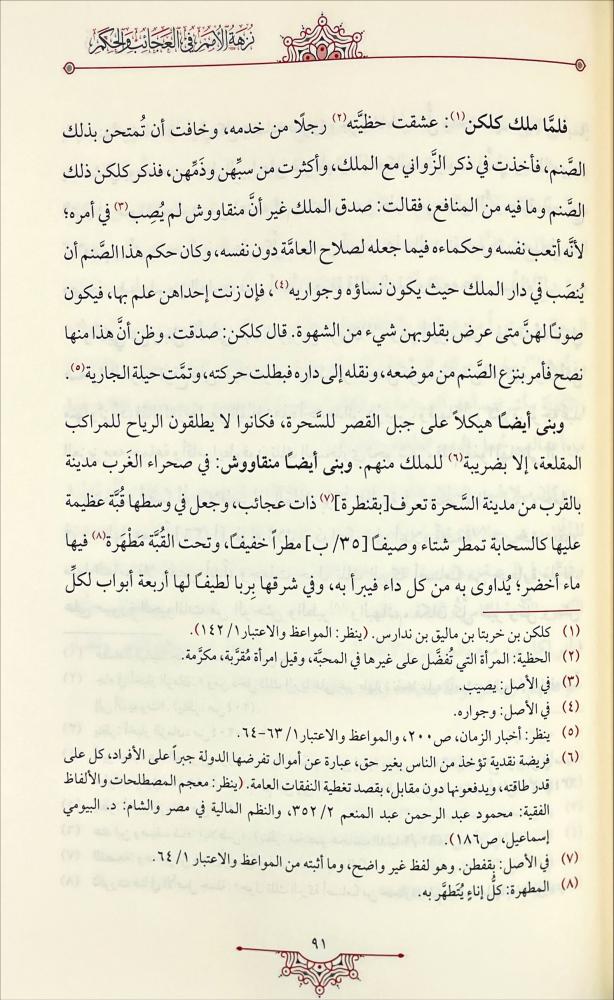 نزهة الأمم في العجائب والحكم
فلمَّا ملك كلكن(١): عشقت حظيَّته(٢) رجلًا من خدمه، وخافت أن تُمتحن بذلك
الصَّنم، فأخذت في ذكر الزَّواني مع الملك، وأكثرت من سبِّهن وذَمِّهن، فذكر كلكن ذلك
الصَّنم وما فيه من المنافع، فقالت: صدق الملك غير أنَّ منقاووش لم يُصِب(٣) في أمره؛
لأنَّه أتعب نفسه وحكماءه فيما جعله لصلاح العامَّة دون نفسه، وكان حكم هذا الصَّنم أن
يُنصَب في دار الملك حيث يكون نساؤه وجواريه(٤)، فإن زنت إحداهن علم بها، فيكون
صونًا لهنَّ متى عرض بقلوبهن شيء من الشهوة. قال كلكن: صدقت. وظن أنَّ هذا منها
نصح فأمر بنزع الصَّنم من موضعه، ونقله إلى داره فبطلت حركته، وتمَّت حيلة الجارية(٥).
وبنى أيضًا هيكلاً على جبل القصر للسَّحرة، فكانوا لا يطلقون الرياح للمراكب
المقلعة، إلا بضريبة(٦) للملك منهم. وبنى أيضًا منقاووش: في صحراء الغَرب مدينة
بالقرب من مدينة السَّحرة تعرف[بقنطرة](٧) ذات عجائب، وجعل في وسطها قُبَّة عظيمة
عليها كالسحابة تمطر شتاء وصيفًا [٣٥/ ب] مطراً خفيفًا، وتحت القُبَّة مَطْهَرة(٨) فيها
ماء أخضر؛ يُداوى به من كل داء فيبرأ به، وفي شرقها بِربا لطيفًا لها أربعة أبواب لكلِّ
(١) كلكن بن خربتا بن ماليق بن ندارس. (ينظر: المواعظ والاعتبار١/ ١٤٢).
(٢) الحظية: المرأة التي تُفضَّل على غيرها في المحبَّة، وقيل امرأة مُقرَّبة، مكرَّمة.
(٣) في الأصل: يصيب.
(٤) في الأصل: وجواره.
(٥) ينظر: أخبار الزمان، ص٢٠٠، والمواعظ والاعتبار١/ ٦٣-٦٤.
(٦) فريضة نقدية تؤخذ من الناس بغير حق، عبارة عن أموال تفرضها الدولة جبراً على الأفراد، كل على
قدر طاقته، ويدفعونها دون مقابل، بقصد تغطية النفقات العامة. (ينظر: معجم المصطلحات والألفاظ
الفقية: محمود عبد الرحمن عبد المنعم ٢/ ٣٥٢، والنظم المالية في مصر والشام: د. البيومي
إسماعيل، ص١٨٦).
(٧) في الأصل: بقفطن. وهو لفظ غير واضح، وما أثبته من المواعظ والاعتبار ١/ ٦٤.
(٨) المطهرة: كلُّ إناءٍ يُتَطهَّر به.
٩١